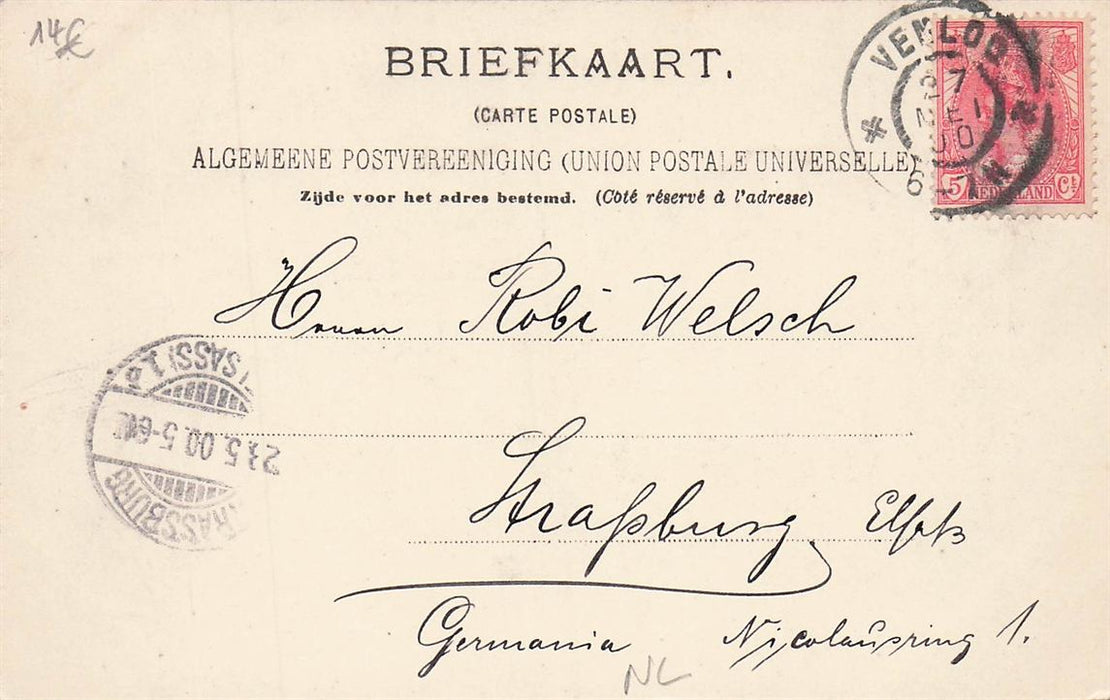 14€
BRIEFKAART.
(CARTE POSTALE)
ALGEMEENE POSTVEREENIGING (UNION POSTALE UNIVERSELLE)
Zijde voor het adres bestemd. (Coté réservé à l'adresse)
VENLOO
27
MEI
00
6-7
5 NEDERLAND Ct
Herrn Robi Welsch
Straßburg Elsaß
Germania Nicolausring 1.
STRASSBURG
21.5.00.5-6N
(ELSASS) 1.
NL